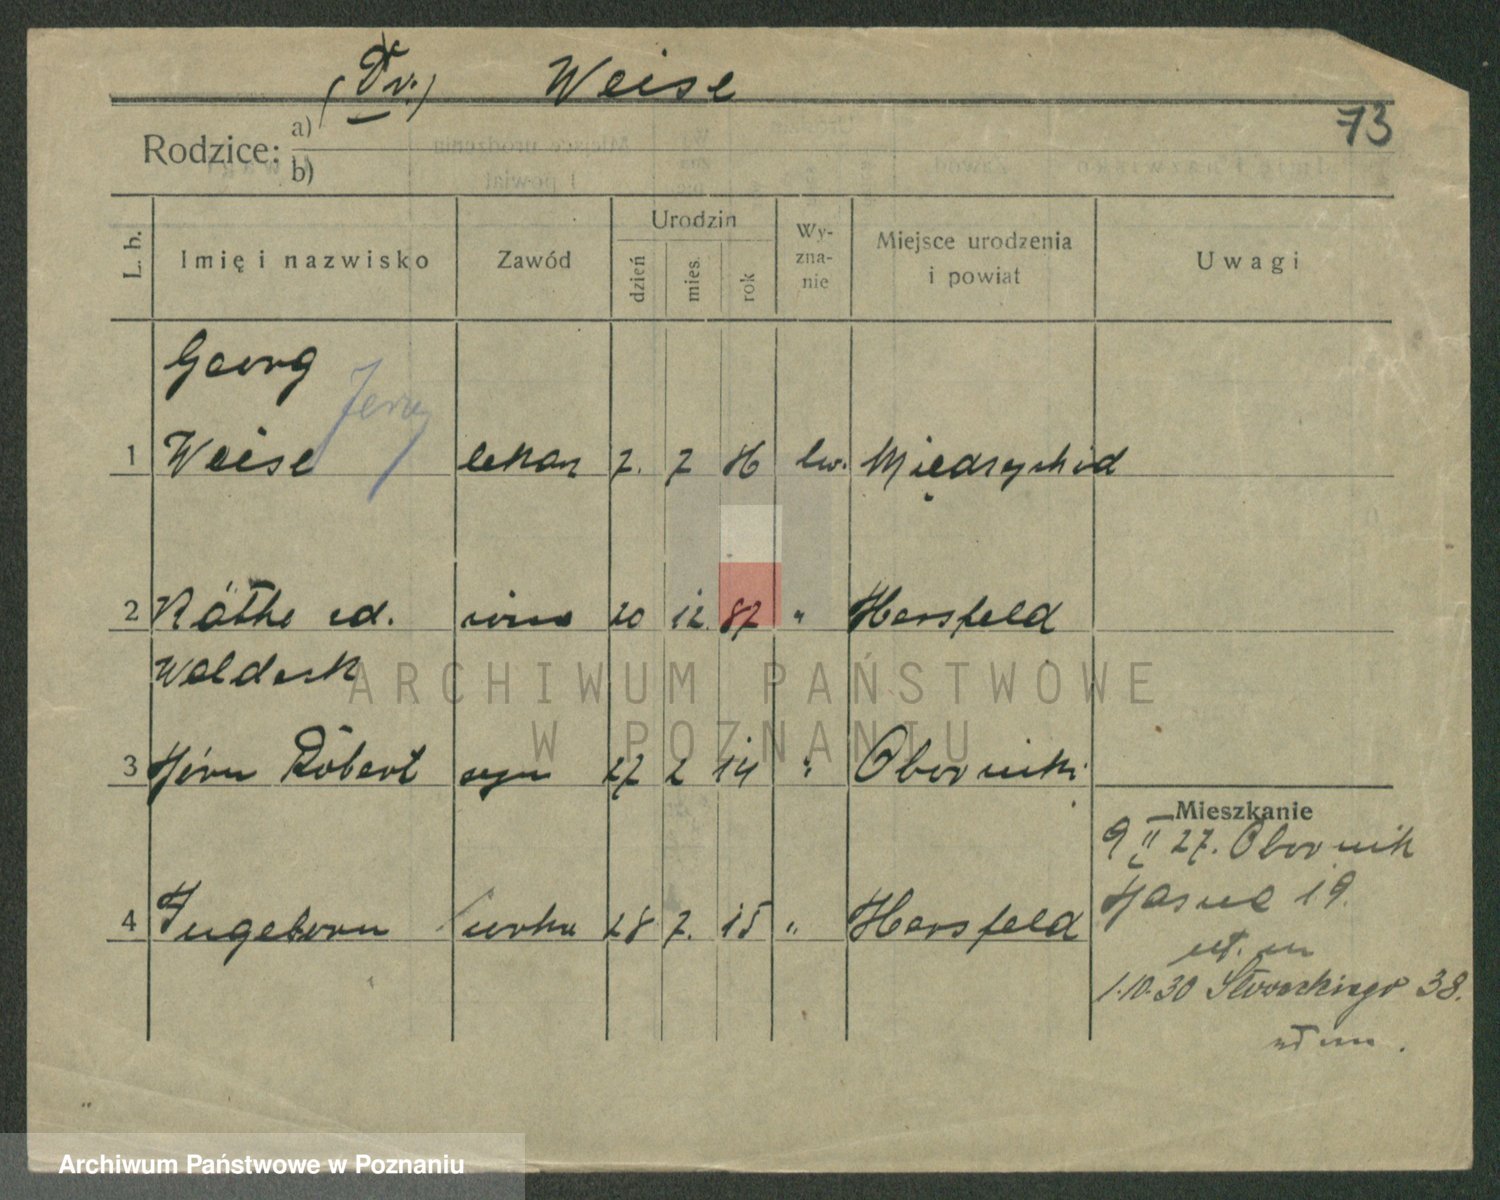 (Dr.) Weise
73
Rodzice: a)
b)
L. b. Imię i nazwisko Zawód Urodzin dzień mies. rok Wy-zna-nie Miejsce urodzenia i powiat Uwagi
Georg
Jerzy
1 Weise lekarz 7. 7 86 ew. Międzychód
2 Käthe ud. żona 20 12. 87 " Hersfeld
Waldeck
3 Jörn Robert syn 27 2 14 " Oborniki
Mieszkanie
9 II 27. Obornik
4 Ingeborn córka 28 7. 15 " Hersfeld
Jasna 19.
1.10.30 Słowackiego 38.
ARCHIWUM PAŃSTWOWE
W POZNANIU
Archiwum Państwowe w Poznaniu